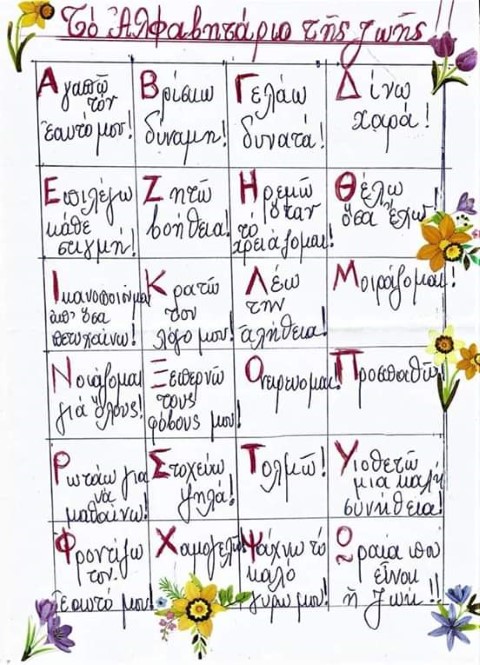 Τὸ Ἀλφαβητάριο τῆς ζωῆς!!
Ἀγαπῶ
τὸν
ἑαυτό μου!
Βρίσκω
δύναμη!
Γελάω
δυνατά!
Δίνω
χαρά!
Ἐπιλέγω
κάθε
στιγμή!
Ζητῶ
βοήθεια!
Ἠρεμῶ
ὅταν
τὸ
χρειάζομαι!
Θέλω
ὅσα ἔχω!
Ἱκανοποιοῦμαι
ἀπ' ὅσα
πετυχαίνω!
Κρατῶ
τον
λόγο μου!
Λέω
την
ἀλήθεια!
Μοιράζομαι!
Νοιάζομαι
γιὰ ὅλους!
Ξεπερνῶ
τους
φόβους μου!
Ὀνειρεύομαι!
Προσπαθῶ!
Ρωτάω για
νὰ
μαθαίνω!
Στοχεύω
ψηλά!
Τολμῶ!
Υἱοθετῶ
μια καλή
συνήθεια!
Φροντίζω
τον
ἑαυτό μου!
Χαμογελῶ!
Ψάχνω τὸ
καλό
γύρω μου!
Ὡραία που
εἶναι
ἡ ζωή!!